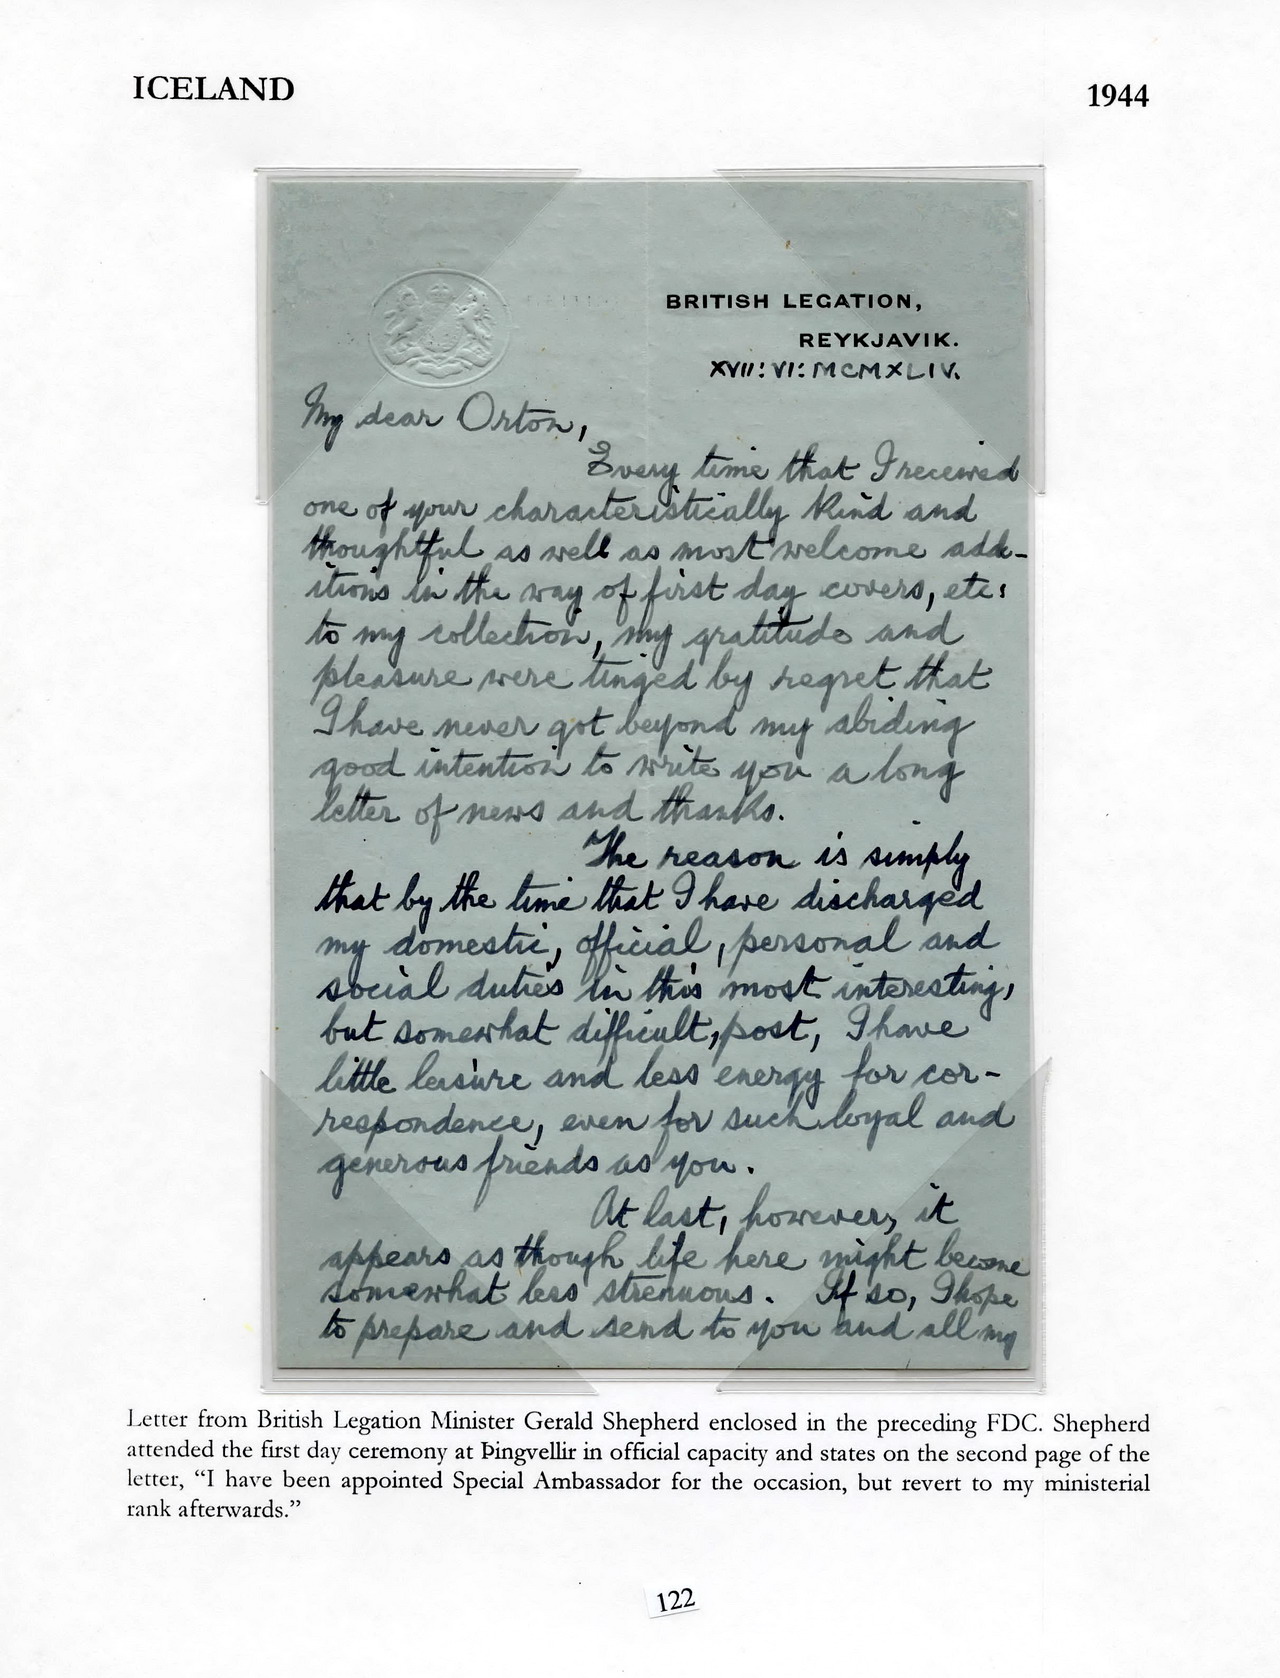 ICELAND
1944
BRITISH LEGATION,
REYKJAVIK.
XVII: VI: MCMXLIV.
My dear Orton,
Every time that I received
one of your characteristically kind and
thoughtful as well as most welcome add-
itions in the way of first day covers, etc:
to my collection, my gratitude and
pleasure were tinged by regret that
I have never got beyond my abiding
good intention to write you a long
letter of news and thanks.
The reason is simply
that by the time that I have discharged
my domestic, official, personal and
social duties in this most interesting,
but somewhat difficult, post, I have
little leisure and less energy for cor-
respondence, even for such loyal and
generous friends as you.
At last, however, it
appears as though life here might become
somewhat less strenuous. If so, I hope
to prepare and send to you and all my
Letter from British Legation Minister Gerald Shepherd enclosed in the preceding FDC. Shepherd
attended the first day ceremony at Þingvellir in official capacity and states on the second page of the
letter, “I have been appointed Special Ambassador for the occasion, but revert to my ministerial
rank afterwards.”
122